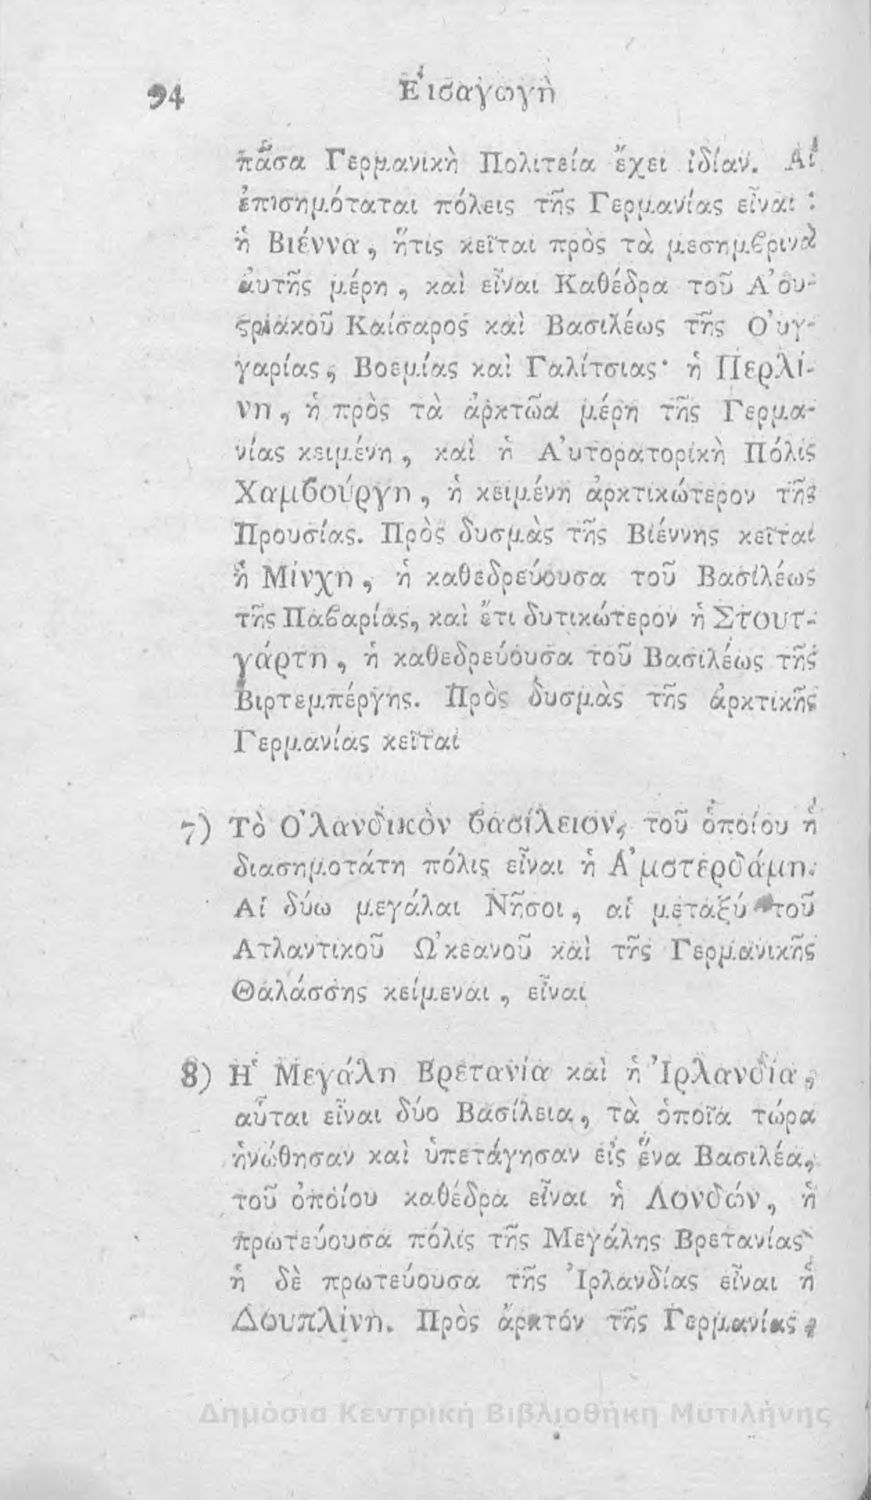 94 Εἰσαγωγὴ
πᾶσα Γερμανικὴ Πολιτεία ἔχει ἰδίαν. Αἱ
ἐπισημόταται πόλεις τῆς Γερμανίας εἶναι :
ἡ Βιέννα, ἥτις κεῖται πρὸς τὰ μεσημϐρινὰ
ἀυτῆς μέρη, καὶ εἶναι Καθέδρα τοῦ Ἀου-
ϛριακοῦ Καίσαρος καὶ Βασιλέως τῆς Οὐγ-
γαρίας, Βοεμίας καὶ Γαλίτσιας· ἡ Περλί-
νη, ἡ πρὸς τὰ ἀρκτῶα μέρη τῆς Γερμα-
νίας κειμένη, καὶ ἡ Ἀυτορατορικὴ Πόλις
Χαμϐούργη, ἡ κειμένη ἀρκτικώτερον τῆς
Προυσίας. Πρὸς δυσμὰς τῆς Βιέννης κεῖται
ἡ Μίνχη, ἡ καθεδρεύουσα τοῦ Βασιλέως
τῆς Παϐαρίας, καὶ ἔτι δυτικώτερον ἡ Στουτ-
γάρτη, ἡ καθεδρεύουσα τοῦ Βασιλέως τῆς
Βιρτεμπέργης. Πρὸς δυσμὰς τῆς ἀρκτικῆς
Γερμανίας κεῖται
7) Τὸ Ὀλανδικὸν ϐασίλειον, τοῦ ὁποίου ἡ
διασημοτάτη πόλις εἶναι ἡ Ἀμστερδάμη.
Αἱ δύω μεγάλαι Νῆσοι, αἱ μεταξύ τοῦ
Ατλαντικοῦ Ὠκεανοῦ καὶ τῆς Γερμανικῆς
Θαλάσσης κείμεναι, εἶναι
8) Ἡ Μεγάλη Βρετανία καὶ ἡ Ἰρλανδία,
αὗται εἶναι δύο Βασίλεια, τὰ ὁποῖα τώρα
ἡνώθησαν καὶ ὑπετάγησαν εἰς ἕνα Βασιλέα,
τοῦ ὁποίου καθέδρα εἶναι ἡ Λονδών, ἡ
πρωτεύουσα πόλις τῆς Μεγάλης Βρετανίας
ἡ δὲ πρωτεύουσα τῆς Ἰρλανδίας εἶναι ἡ
Δουπλίνη. Πρὸς ἄρκτόν τῆς Γερμανίας,
Δημόσια Κεντρική Βιβλιοθήκη Μυτιλήνης